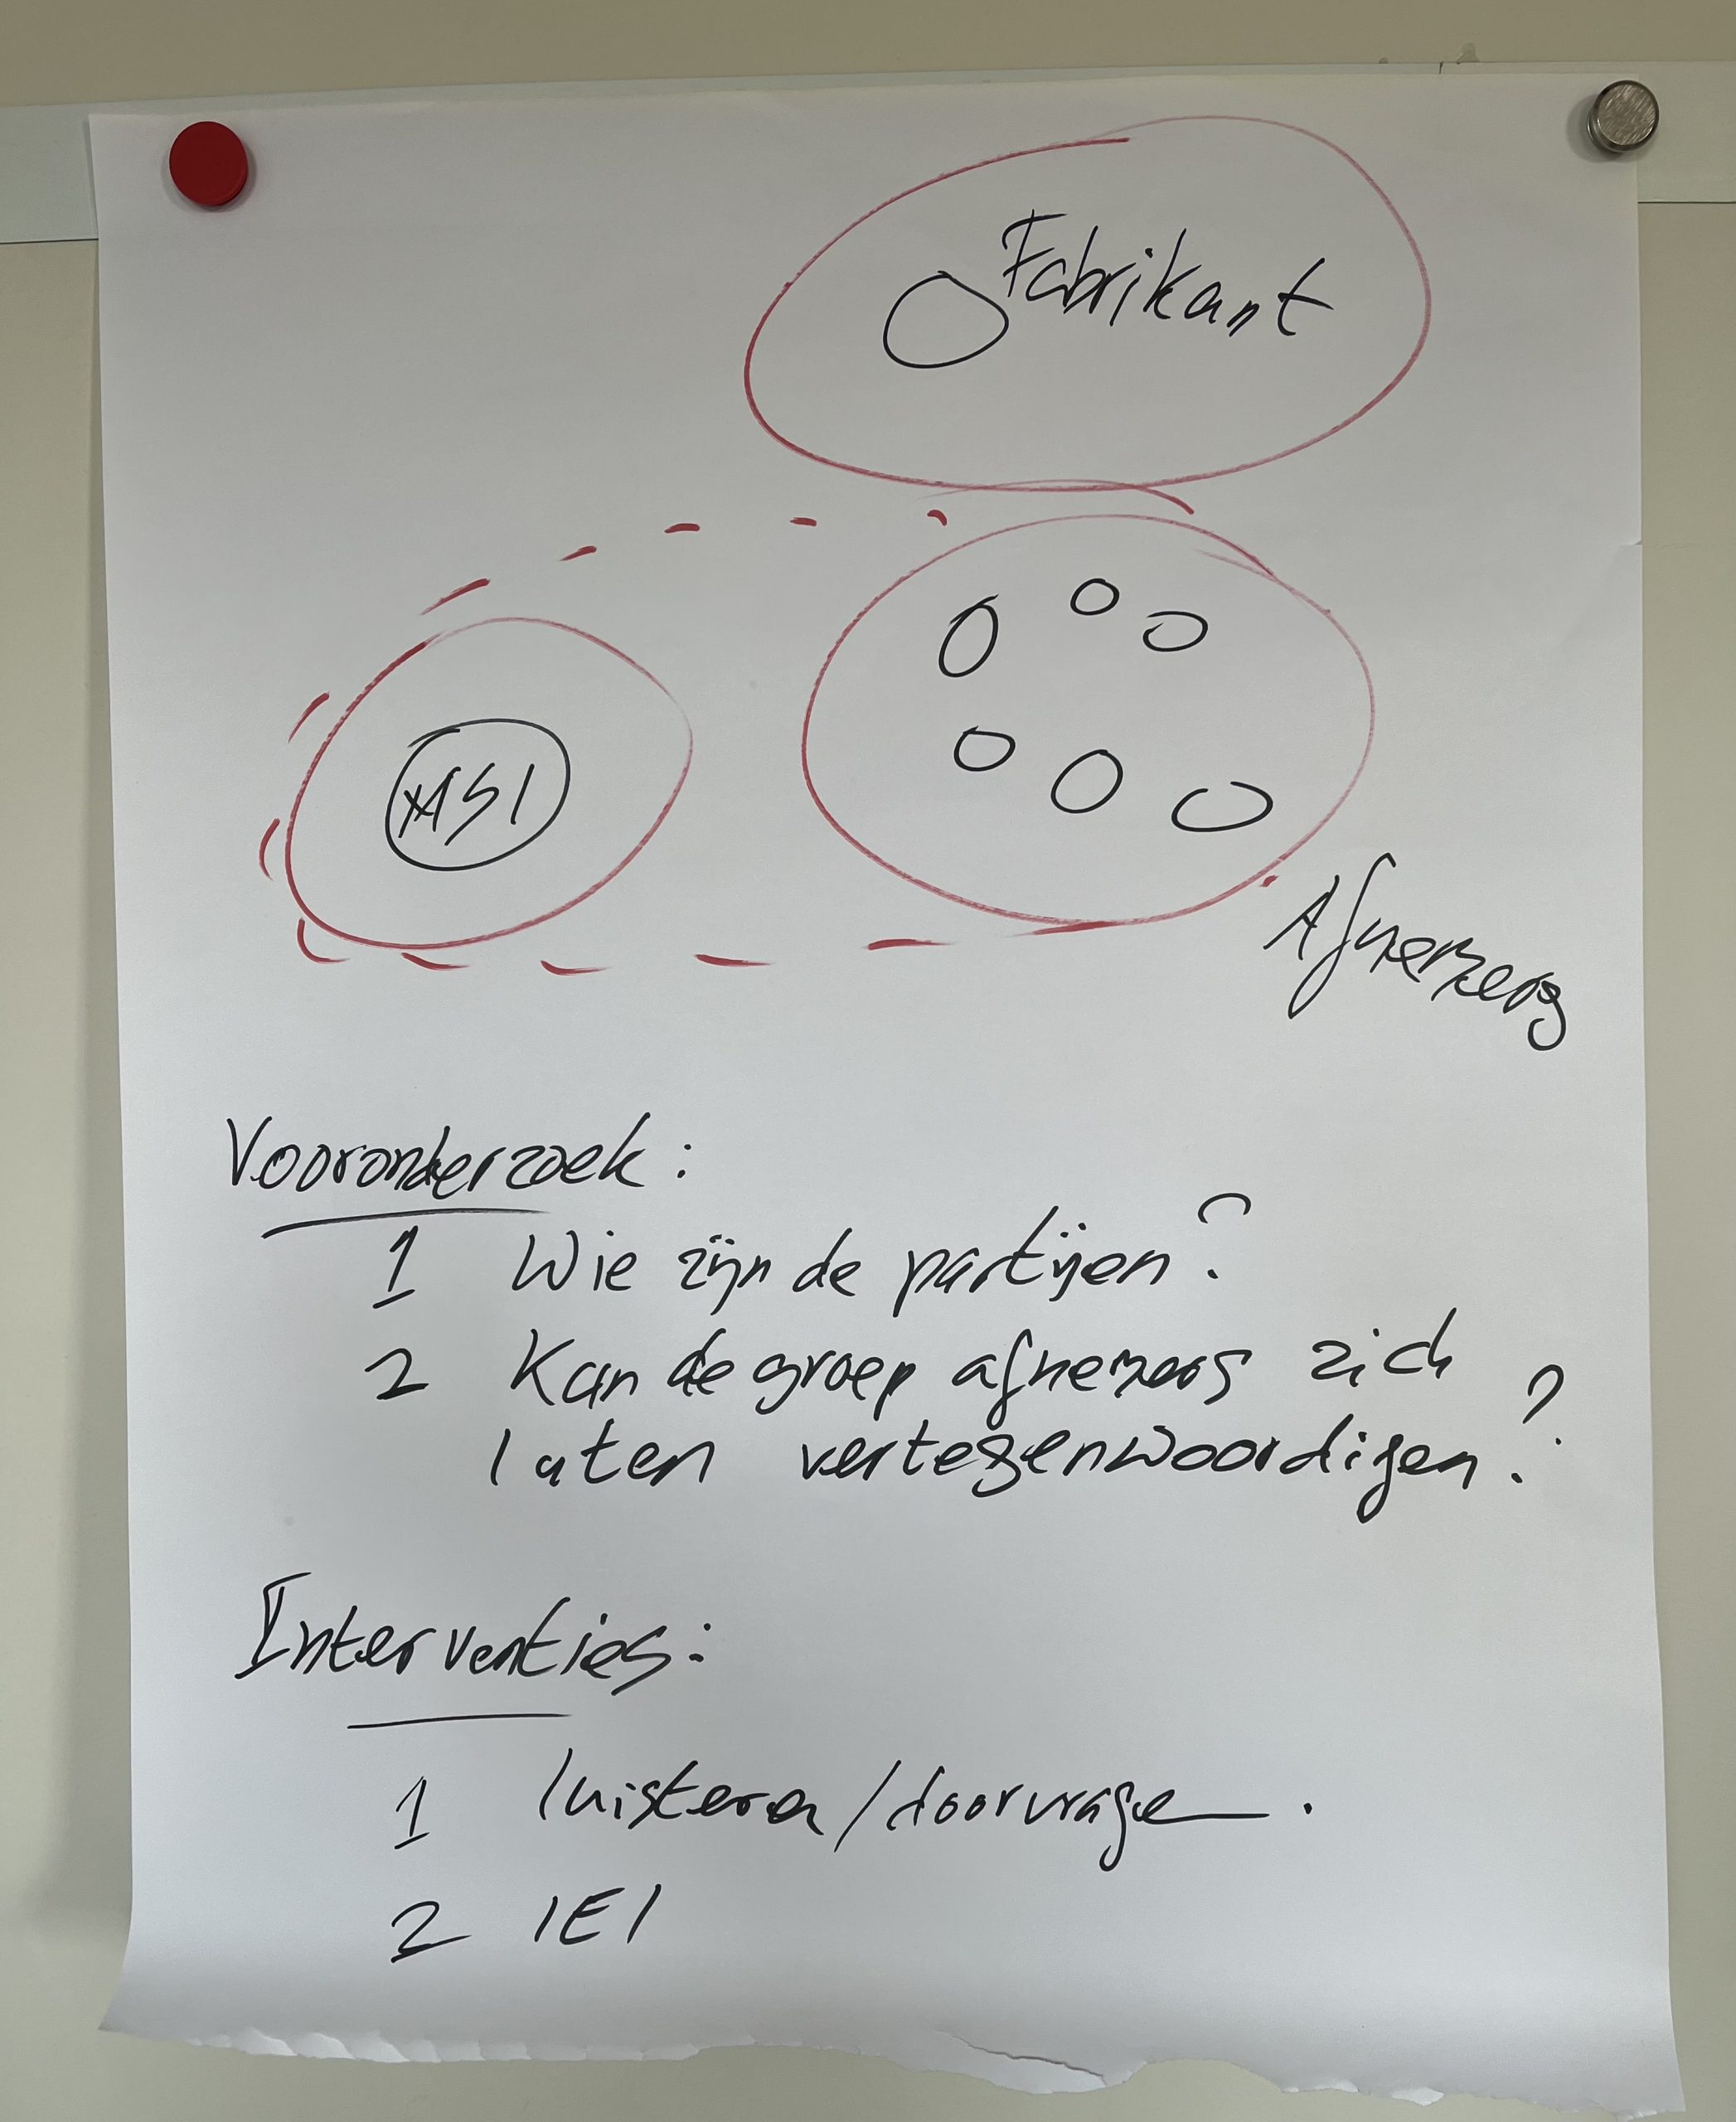 Fabrikant
Afnemers
Vooronderzoek:
1 Wie zijn de partijen?
2 Kan de groep afnemers zich
laten vertegenwoordigen??
Interventies:
1 luisteren/doorvragen.
2 IEI